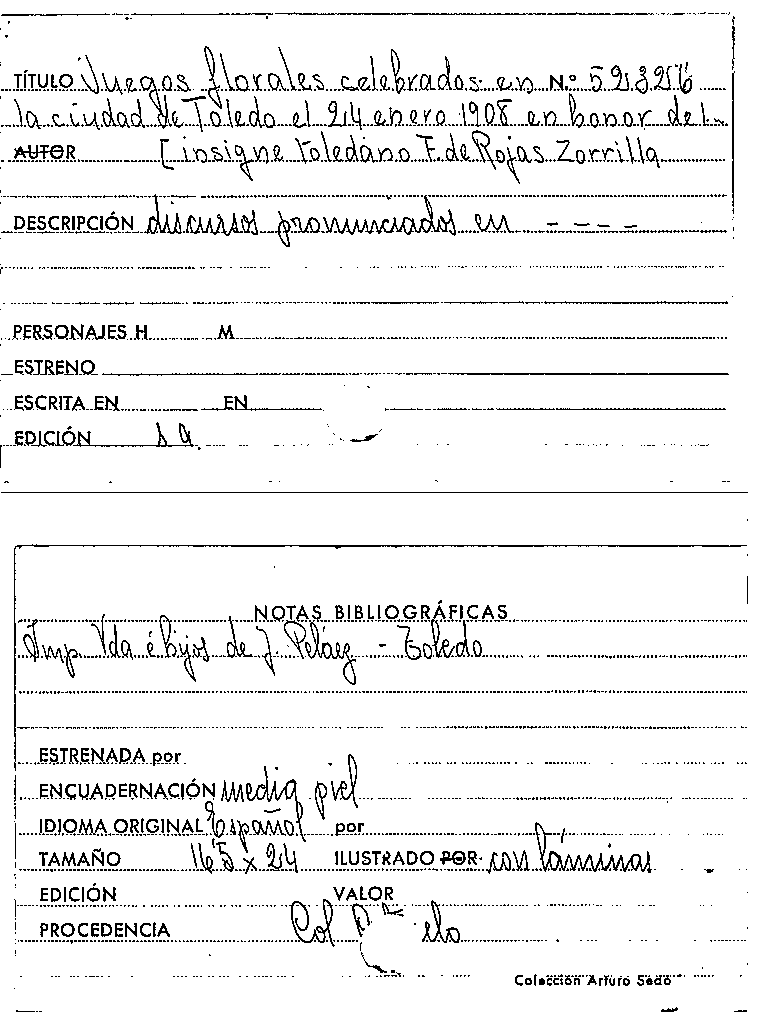 TÍTULO Juegos florales celebrados en N.º 59.3216
la ciudad de Toledo el 24 enero 1908 en honor del
AUTOR [insigne toledano F. de Rojas Zorrilla
DESCRIPCIÓN discursos pronunciados en - - - -
PERSONAJES H M
ESTRENO
ESCRITA EN EN
EDICIÓN s a.
NOTAS BIBLIOGRÁFICAS
Imp. Vda é hijos de J. Peláez - Toledo
ESTRENADA por
ENCUADERNACIÓN media piel
IDIOMA ORIGINAL Español por
TAMAÑO 16'5 x 24 ILUSTRADO POR con láminas
EDICIÓN VALOR
PROCEDENCIA Col
Colección Arturo Sedó